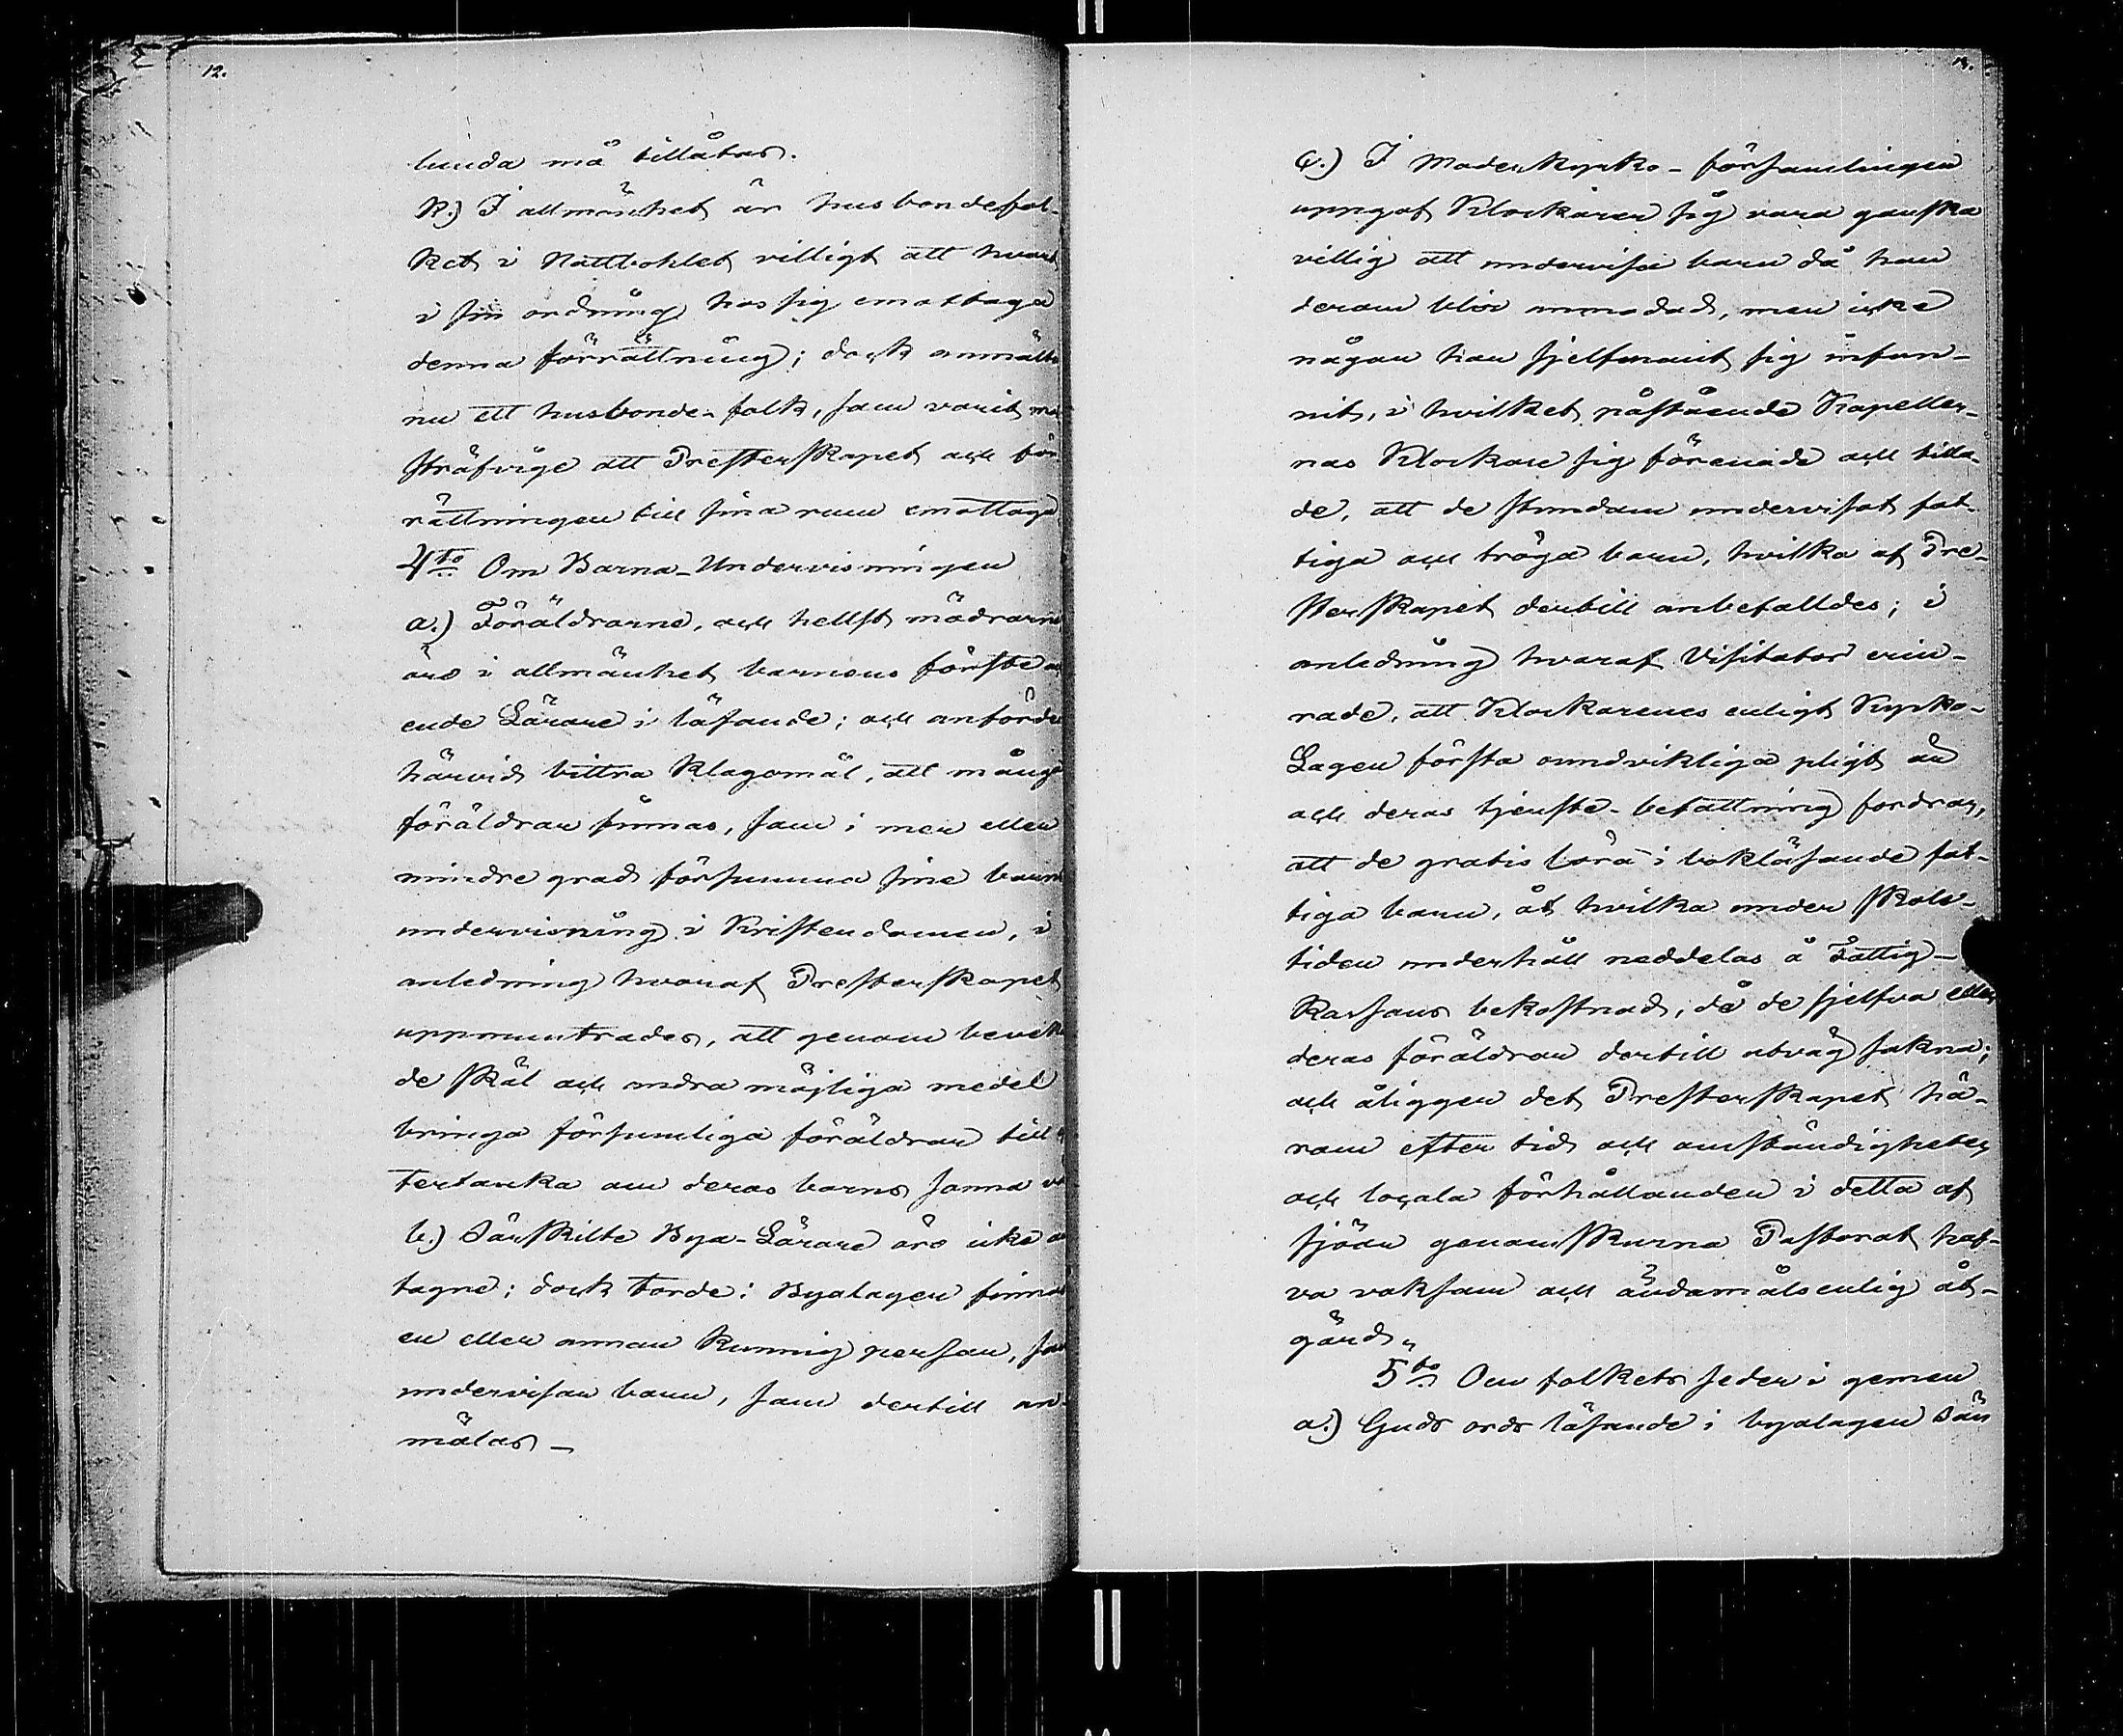 12.
lunda må tillåtas.
k.) I allmänhet är husbondefol-
ket i Nattbohlet villigt att hvart
i sin ordning hos sig emottaga
denna förrättning; dock anmältes
nu ett husbonde-folk, som varit
sträfvige att Presterskapet och för
rättningen till sina rum emottaga
4to Om Barna-Undervisningen
a.) Föräldrarne, och helst mödrarne
äro i allmänhet barnens förste
ende Lärare i läsande; och anfördes
härvid bittra klagomål, att många
föräldrar finnas, som i mer eller
mindre grad försumma sine barns
undervisning i Kristendomen, i
anledning hvaraf Presterskapet
uppmuntrades, att genom bevekan
de skäl och andra möjliga medel
bringa försumliga föräldrar till
tertanka om deras barns sanna
b.) Särskilte Bya-Lärare äro icke
tagne; dock torde i Byalagen finnas
en eller annan kunnig person, som
undervisar barn, som dertill an-
mälas_
c.) I Moderkyrko-församlingen
uppgaf Klockaren sig vara ganska
villig att undervisa barn då han
derom blir anmodad, men icke
någon har sjelfmant sig infun-
nit, i hvilket påstående Kapeller-
nas Klockare sig förenade och tilla-
de, att de stundom undervisat fat-
tiga och tröga barn, hvilka af Pre-
sterskapet dertill anbefalldes; i
anledning hvaraf Visitator erin-
rade, att Klockarenes enligt Kyrko-
Lagen första oundvikliga pligt är
och deras tjenste-befattning fordrar,
att de gratis lära i bokläsande fat-
tiga barn, åt hvilka under skole-
tiden underhåll meddelas å Fattig-
Kassans bekostnad, då de sjelfva eller
deras föräldrar dertill utväg sakna;
och åligger det Presterskapet hä-
rom efter tid och omständigheter
och locala förhållanden i detta af
sjöar genomskurna Pastorat haf-
va vaksam och ändamålsenlig åt-
gärd.
5to Om folkets seder i gemen
a.) Guds ords läsande i byalagen